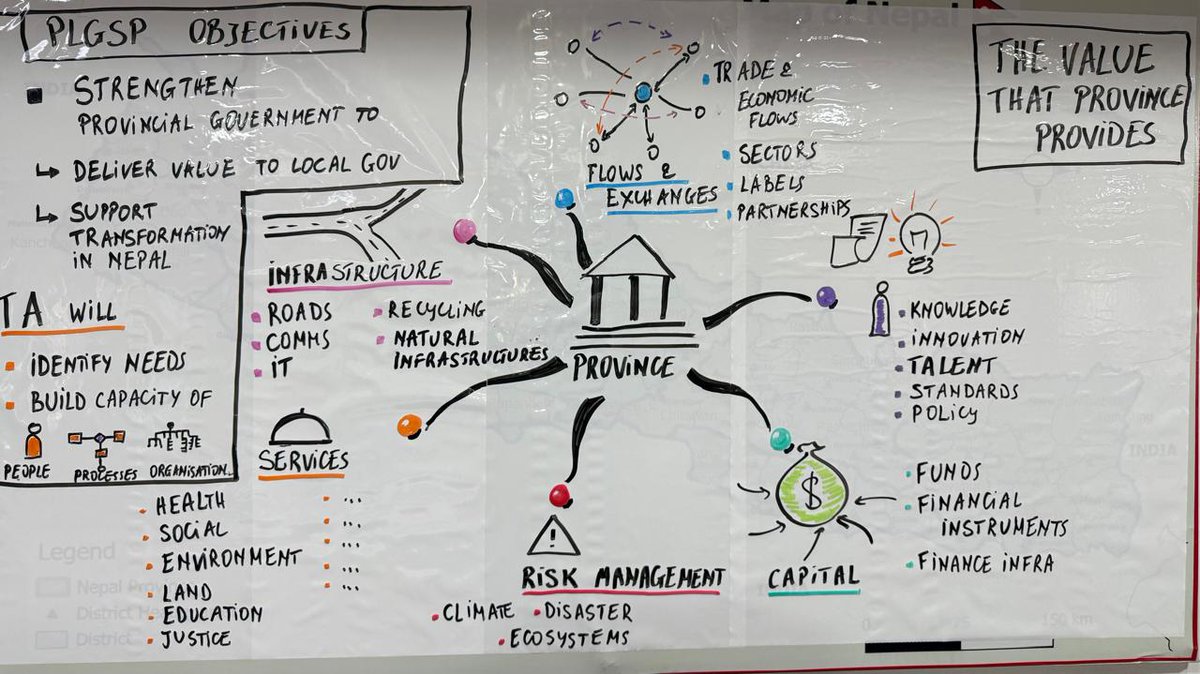 PLGSP OBJECTIVES
STRENGTHEN
PROVINCIAL GOVERNMENT TO
DELIVER VALUE TO LOCAL GOV
SUPPORT
TRANSFORMATION
IN NEPAL
TA WILL
IDENTIFY NEEDS
BUILD CAPACITY OF
PEOPLE
PROCESSES
ORGANISATION
INFRASTRUCTURE
ROADS
COMMS
IT
RECYCLING
NATURAL
INFRASTRUCTURES
SERVICES
HEALTH
SOCIAL
ENVIRONMENT
LAND
EDUCATION
JUSTICE
...
...
...
...
...
FLOWS &
EXCHANGES
TRADE &
ECONOMIC
FLOWS
SECTORS
LABELS
PARTNERSHIPS
PROVINCE
RISK MANAGEMENT
CLIMATE
DISASTER
ECOSYSTEMS
!
THE VALUE
THAT PROVINCE
PROVIDES
KNOWLEDGE
INNOVATION
TALENT
STANDARDS
POLICY
$
CAPITAL
FUNDS
FINANCIAL
INSTRUMENTS
FINANCE INFRA
of Nepal
INDIA
Legend
District
150 km